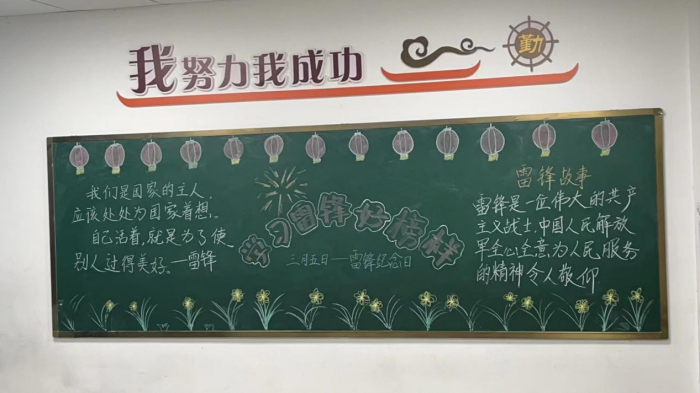 我努力我成功
勤
我们是国家的主人,
应该处处为国家着想。
自己活着,就是为了使
别人过得美好。—雷锋
学习雷锋好榜样
三月五日—雷锋纪念日
雷锋故事
雷锋是一位伟大的共产
主义战士,中国人民解放
军全心全意为人民服务
的精神令人敬仰